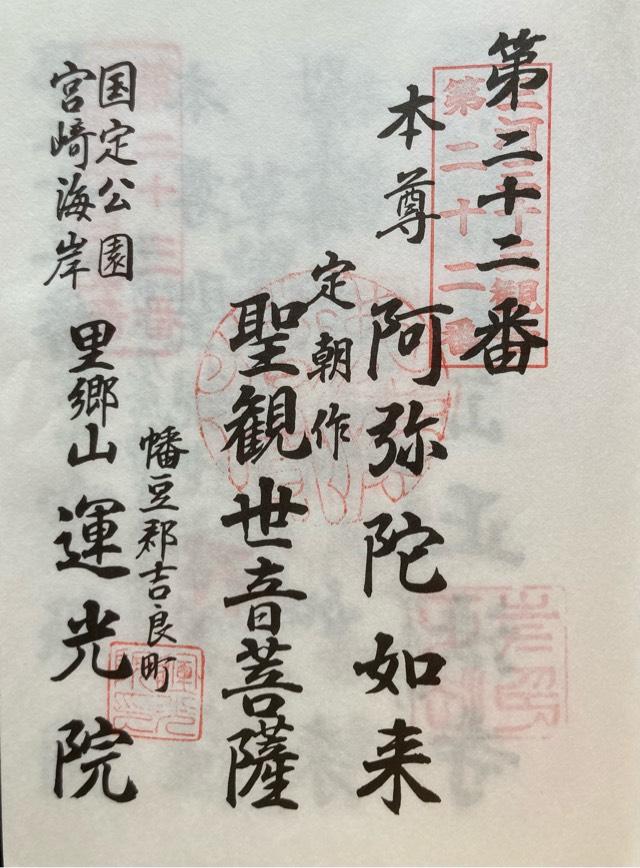 第二十二番
本尊 阿弥陀如来
定朝作
聖観世音菩薩
幡豆郡吉良町
国定公園
宮崎海岸
里郷山 運光院
第二十二番